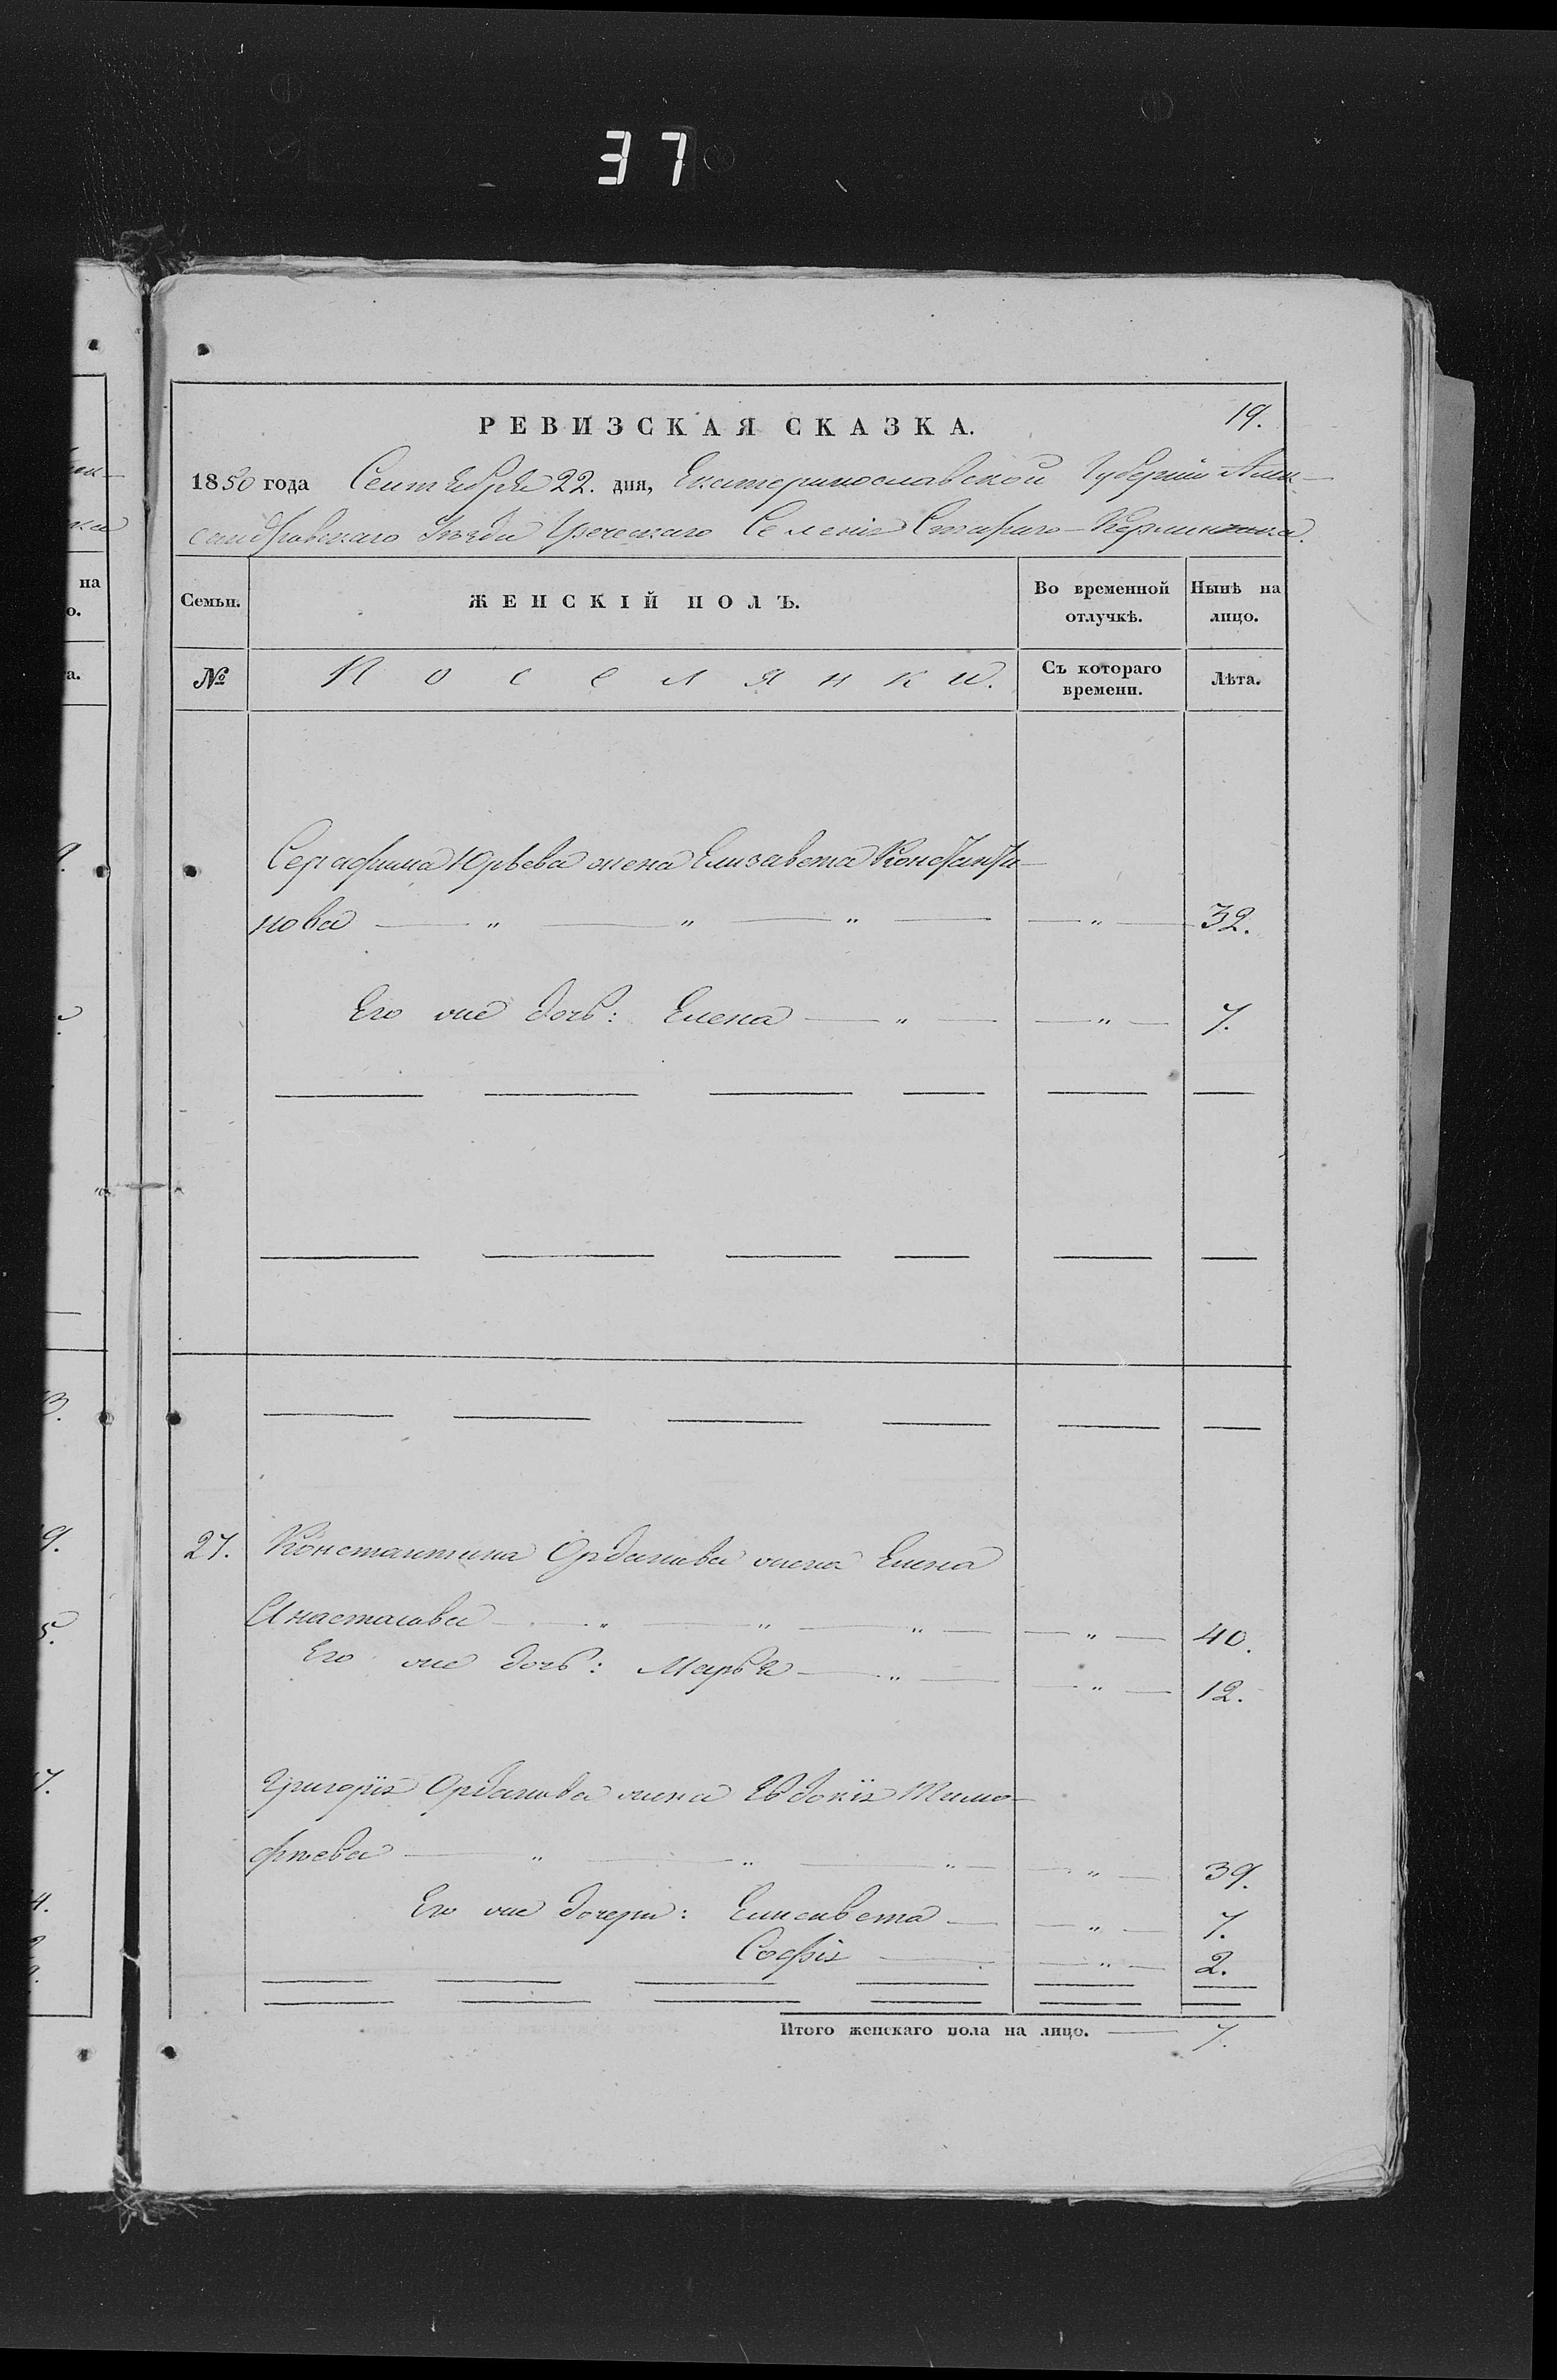 37
19.
РЕВИЗСКАЯ СКАЗКА.
1850 года Сентября 22. дня, Екатеринославской Губернии Алек-
сандровскаго Уезда Греческаго Селенія Стараго-Керменчика.
Семьи. ЖЕНСКІЙ ПОЛЪ. Во временной отлучкѣ. Нынѣ на лицо.
№ Поселянки. Съ котораго времени. Лѣта.
Серафима Юрьева жена Елизавета Константи-
нова — „ — „ — „ — — „ — 32.
Его же дочь: Елена — „ — — „ — 7.
27. Константина Орданова жена Елена
Анастасова — „ — „ — „ — — „ — 40.
Его же дочь: Марья — „ — — „ — 12.
Григорія Орданова жена Евдокія Тимо-
фѣева — „ — „ — „ — — „ — 39.
Его же дочери: Елисавета — — „ — 7.
Софія — — „ — 2.
Итого женскаго пола на лицо. — 7.
на
о.
а.